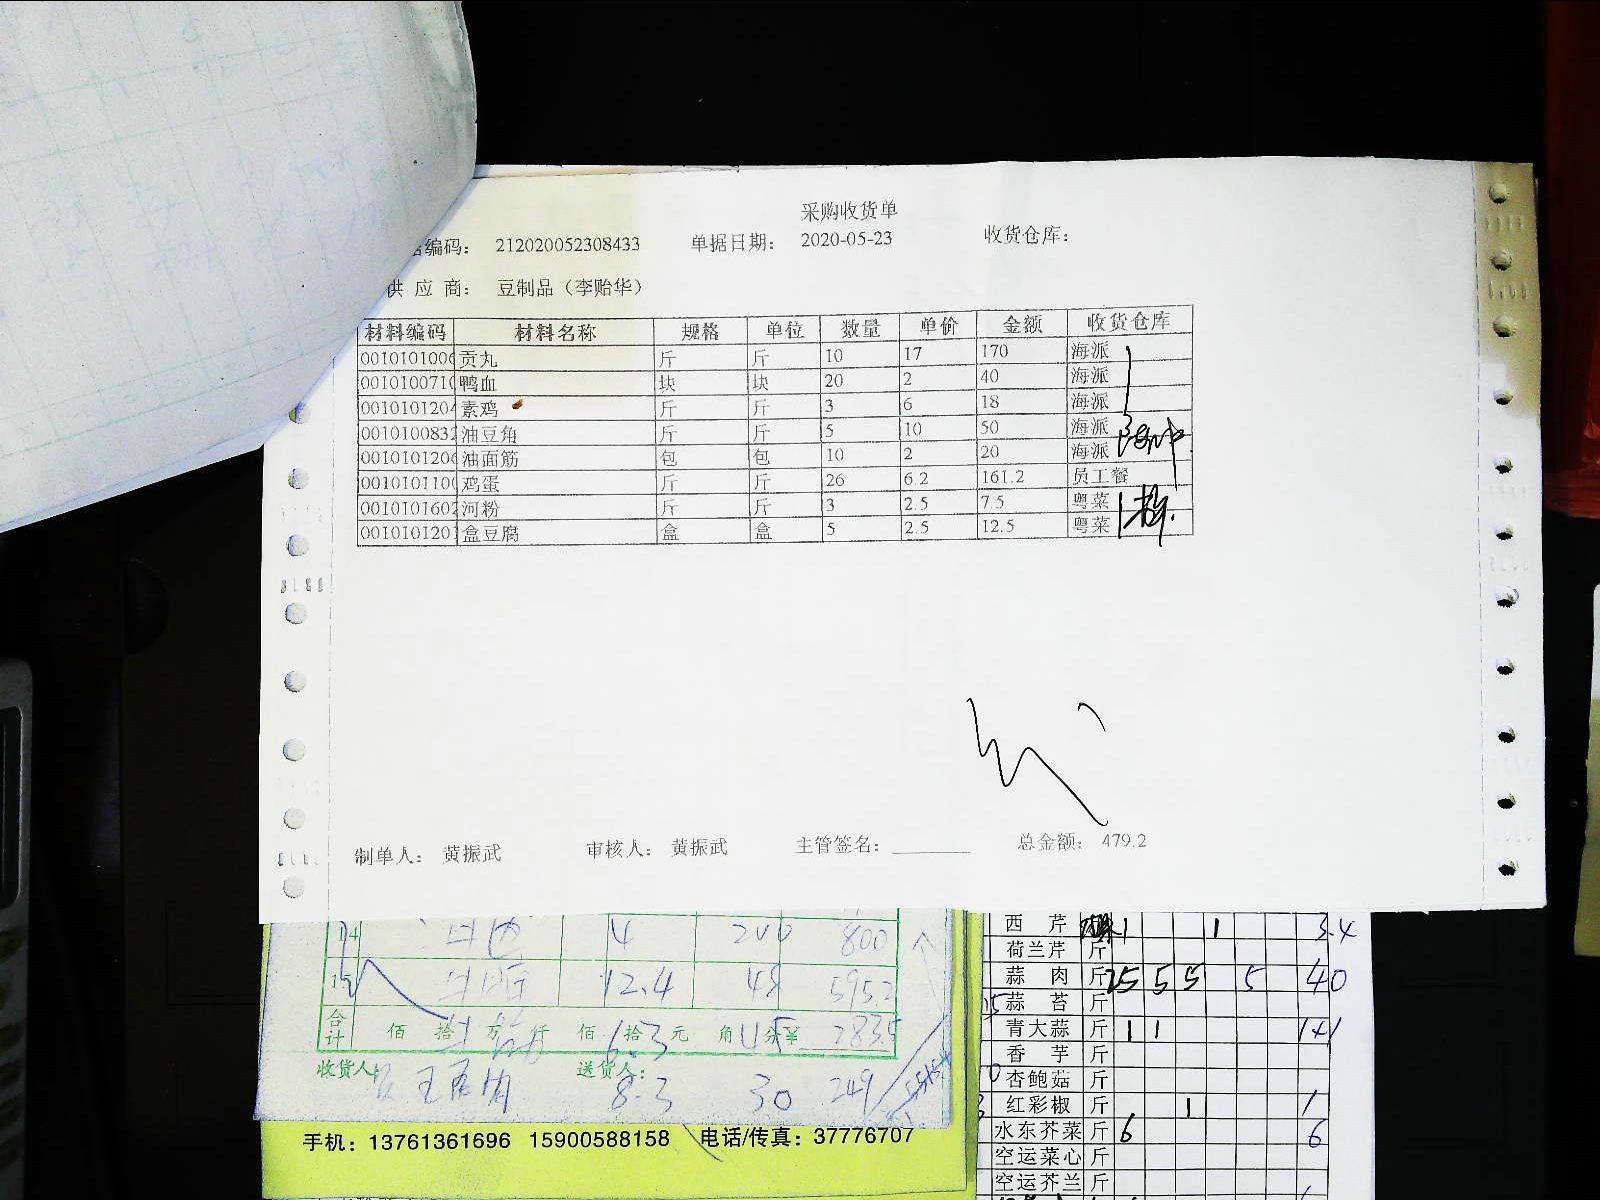 采购收货单
编码： 212020052308433 单据日期： 2020-05-23 收货仓库：
供 应 商： 豆制品（李贻华）
材料编码 材料名称 规格 单位 数量 单价 金额 收货仓库
0010101006 贡丸 斤 斤 10 17 170 海派
001010071 鸭血 块 块 20 2 40 海派
0010101204 素鸡 斤 斤 3 6 18 海派
0010100832 油豆角 斤 斤 5 10 50 海派
0010101206 油面筋 包 包 10 2 20 海派
001010110 鸡蛋 斤 斤 26 6.2 161.2 员工餐
0010101602 河粉 斤 斤 3 2.5 7.5 粤菜
001010120 盒豆腐 盒 盒 5 2.5 12.5 粤菜
制单人： 黄振武 审核人： 黄振武 主管签名： 总金额： 479.2
14 4 200 800
15 12.4 48 5952
合计 佰 拾 万 仟 佰 拾 元 角 分 ¥ 2835
6.3 45
收货人： 送货人：
8.3 30 249
手机：13761361696 15900588158 电话/传真：37776707
西 芹 1 1 3.4
荷兰芹 斤
蒜 肉 斤 25 5 5 5 40
蒜 苔 斤
青大蒜 斤 1 1 1+1
香 芋 斤
杏鲍菇 斤
红彩椒 斤 1 1
水东芥菜 斤 6 6
空运菜心 斤
空运芥兰 斤